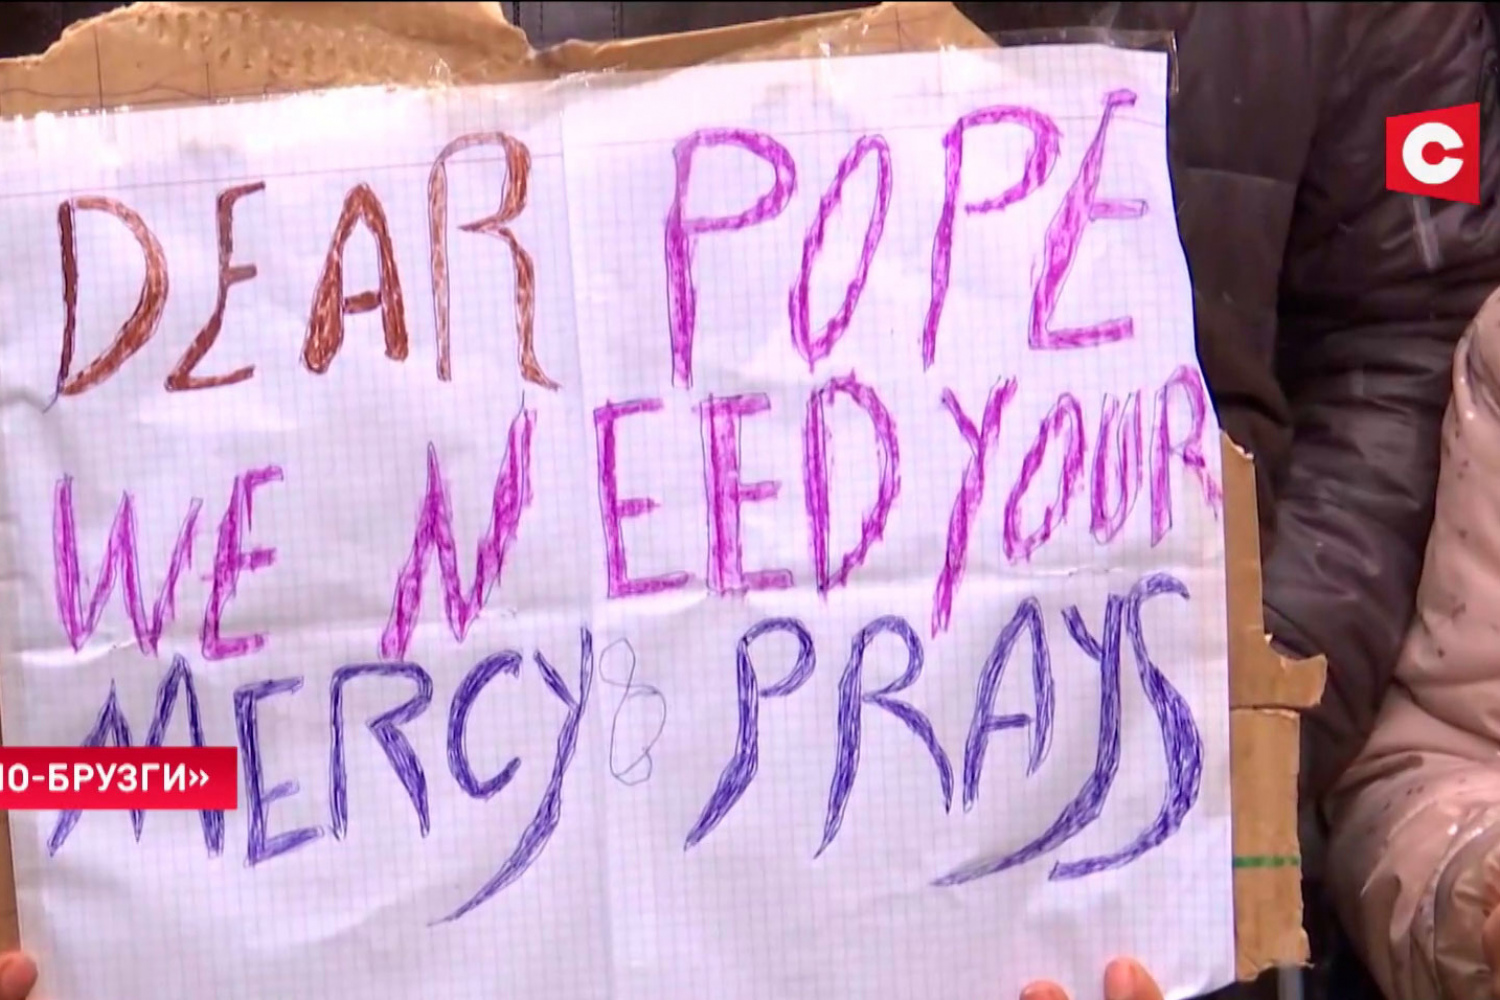 DEAR POPE
WE NEED YOUR
MERCY & PRAYS
C
НО-БРУЗГИ»